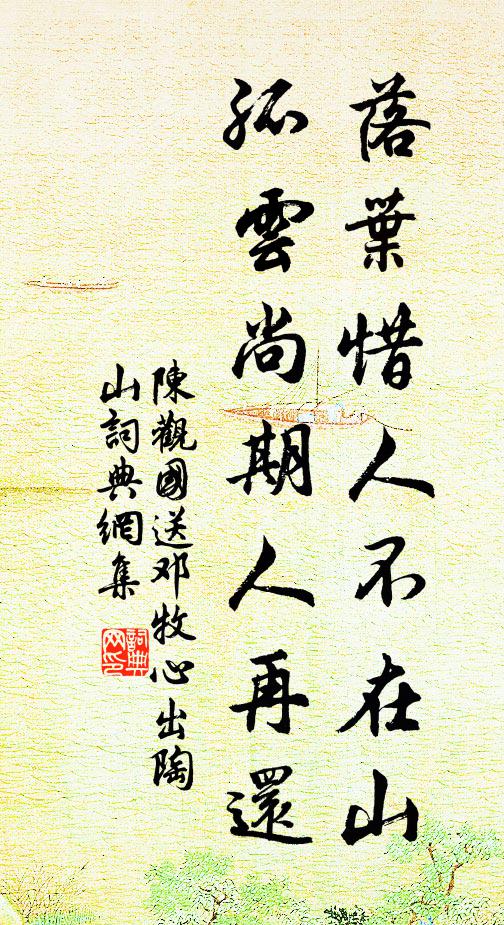 落葉惜人不在山
孤雲尚期人再還
陳觀國送邓牧心出陶
山詞典網集
詞典网印